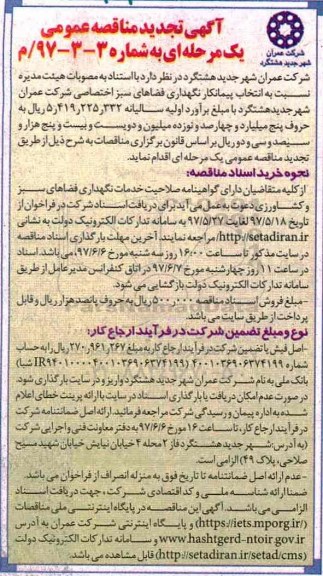 شرکت عمران
شهر جدید هشتگرد
آگهی تجدید مناقصه عمومی
یک مرحله ای به شماره ۳-۳-۹۷/م
شرکت عمران شهر جدید هشتگرد در نظر دارد با استناد به مصوبات هیئت مدیره
نسبت به انتخاب پیمانکار نگهداری فضاهای سبز اختصاصی شرکت عمران
شهر جدید هشتگرد با مبلغ برآورد اولیه سالیانه ۵٫۴۱۹٫۲۲۵٫۳۳۲ ریال به
حروف پنج میلیارد و چهارصد و نوزده میلیون و دویست و بیست و پنج هزار و
سیصد و سی و دو ریال بر اساس قانون برگزاری مناقصات به شرح ذیل از طریق
تجدید مناقصه عمومی یک مرحله ای اقدام نماید.
نحوه خرید اسناد مناقصه:
از کلیه متقاضیان دارای گواهینامه صلاحیت خدمات نگهداری فضاهای سبز
و کشاورزی دعوت به عمل می آید برای دریافت اسناد شرکت در فراخوان از
تاریخ ۹۷/۵/۱۸ لغایت ۹۷/۵/۲۷ به سامانه تدارکات الکترونیک دولت به نشانی
http://setadiran.ir/ مراجعه نمایند. آخرین مهلت بارگذاری اسناد مناقصه
در سایت مذکور تا ساعت ۱۶:۰۰ روز سه شنبه مورخ ۹۷/۶/۶ می باشد. اسناد
در ساعت ۱۱ روز چهارشنبه مورخ ۹۷/۶/۷ در اتاق کنفرانس مدیر عامل از طریق
سامانه تدارکات الکترونیک دولت بازگشایی می شود.
-مبلغ فروش اسناد مناقصه ۵۰۰٫۰۰۰ ریال به حروف پانصد هزار ریال و قابل
پرداخت از طریق سایت می باشد.
نوع و مبلغ تضمین شرکت در فرآیند ارجاع کار:
-اصل فیش یا تضمین شرکت در فرآیند ارجاع کار به مبلغ ۲۷۰٫۹۶۱٫۲۶۷ ریال را به حساب
شماره ۴۰۰۱۰۳۶۹۰۶۳۷۴۱۹۹ (شبا
بانک ملی به نام شرکت عمران شهر جدید هشتگرد واریز و در سایت بارگذاری شود.
در صورت عدم امکان دریافت یا بارگذاری اسناد در سایت با ارائه پرینت خطای اعلام
شده به اداره پیمان و رسیدگی شرکت مراجعه فرمائید. ارائه اصل ضمانتنامه شرکت
در فرآیند ارجاع کار، تا ساعت ۱۶ مورخ ۹۷/۶/۶ به دفتر معاونت فنی و اجرایی شرکت
(به آدرس: شهر جدید هشتگرد فاز ۲ محله ۴ خیابان نیایش خیابان شهید مسیح
صلاحی، پلاک ۴۹) الزامی است.
-عدم ارائه اصل ضمانتنامه تا تاریخ فوق به منزله انصراف از فراخوان می باشد.
ضمنا ارائه شناسه ملی و کد اقتصادی شرکت، جهت دریافت اسناد
الزامی می باشد. آگهی این مناقصه در پایگاه اینترنتی ملی مناقصات
(https://iets.mporg.ir/) و پایگاه اینترنتی شرکت عمران به آدرس
www.hashtgerd-ntoir.gov.ir و سامانه تدارکات الکترونیک دولت
(http://setadiran.ir/setad/cms) قابل مشاهده می باشد.